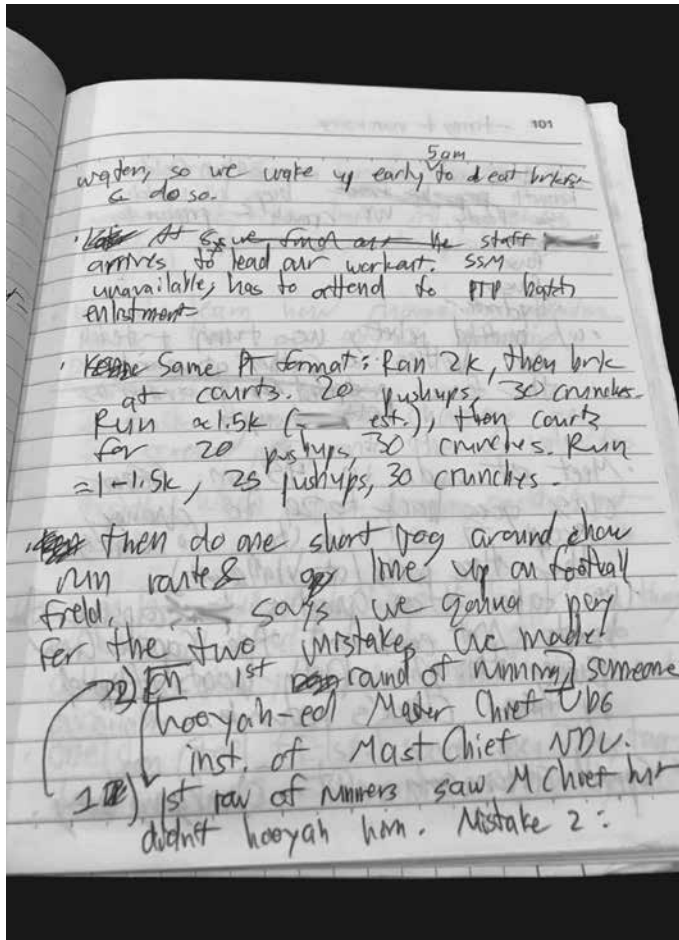 101
5am
water, so we wake up early to eat brkfst
& do so.
the staff
arrives to lead our workout. SSM
unavailable, has to attend to PTP batch
enlistment
Same PT format: Ran 2k, then brk
at courts. 20 pushups, 30 crunches.
Run ≈1.5k ( est.), then courts
for 20 pushups, 30 crunches. Run
≈1-1.5k, 25 pushups, 30 crunches.
then do one short jog around
run route & line up on football
field. says we gonna pay
for the two mistakes we made:
2) on 1st round of running, someone
hooyah-ed Master Chief
inst. of Mast Chief NDU.
1) 1st row of runners saw M Chief but
didn't hooyah him. Mistake 2: